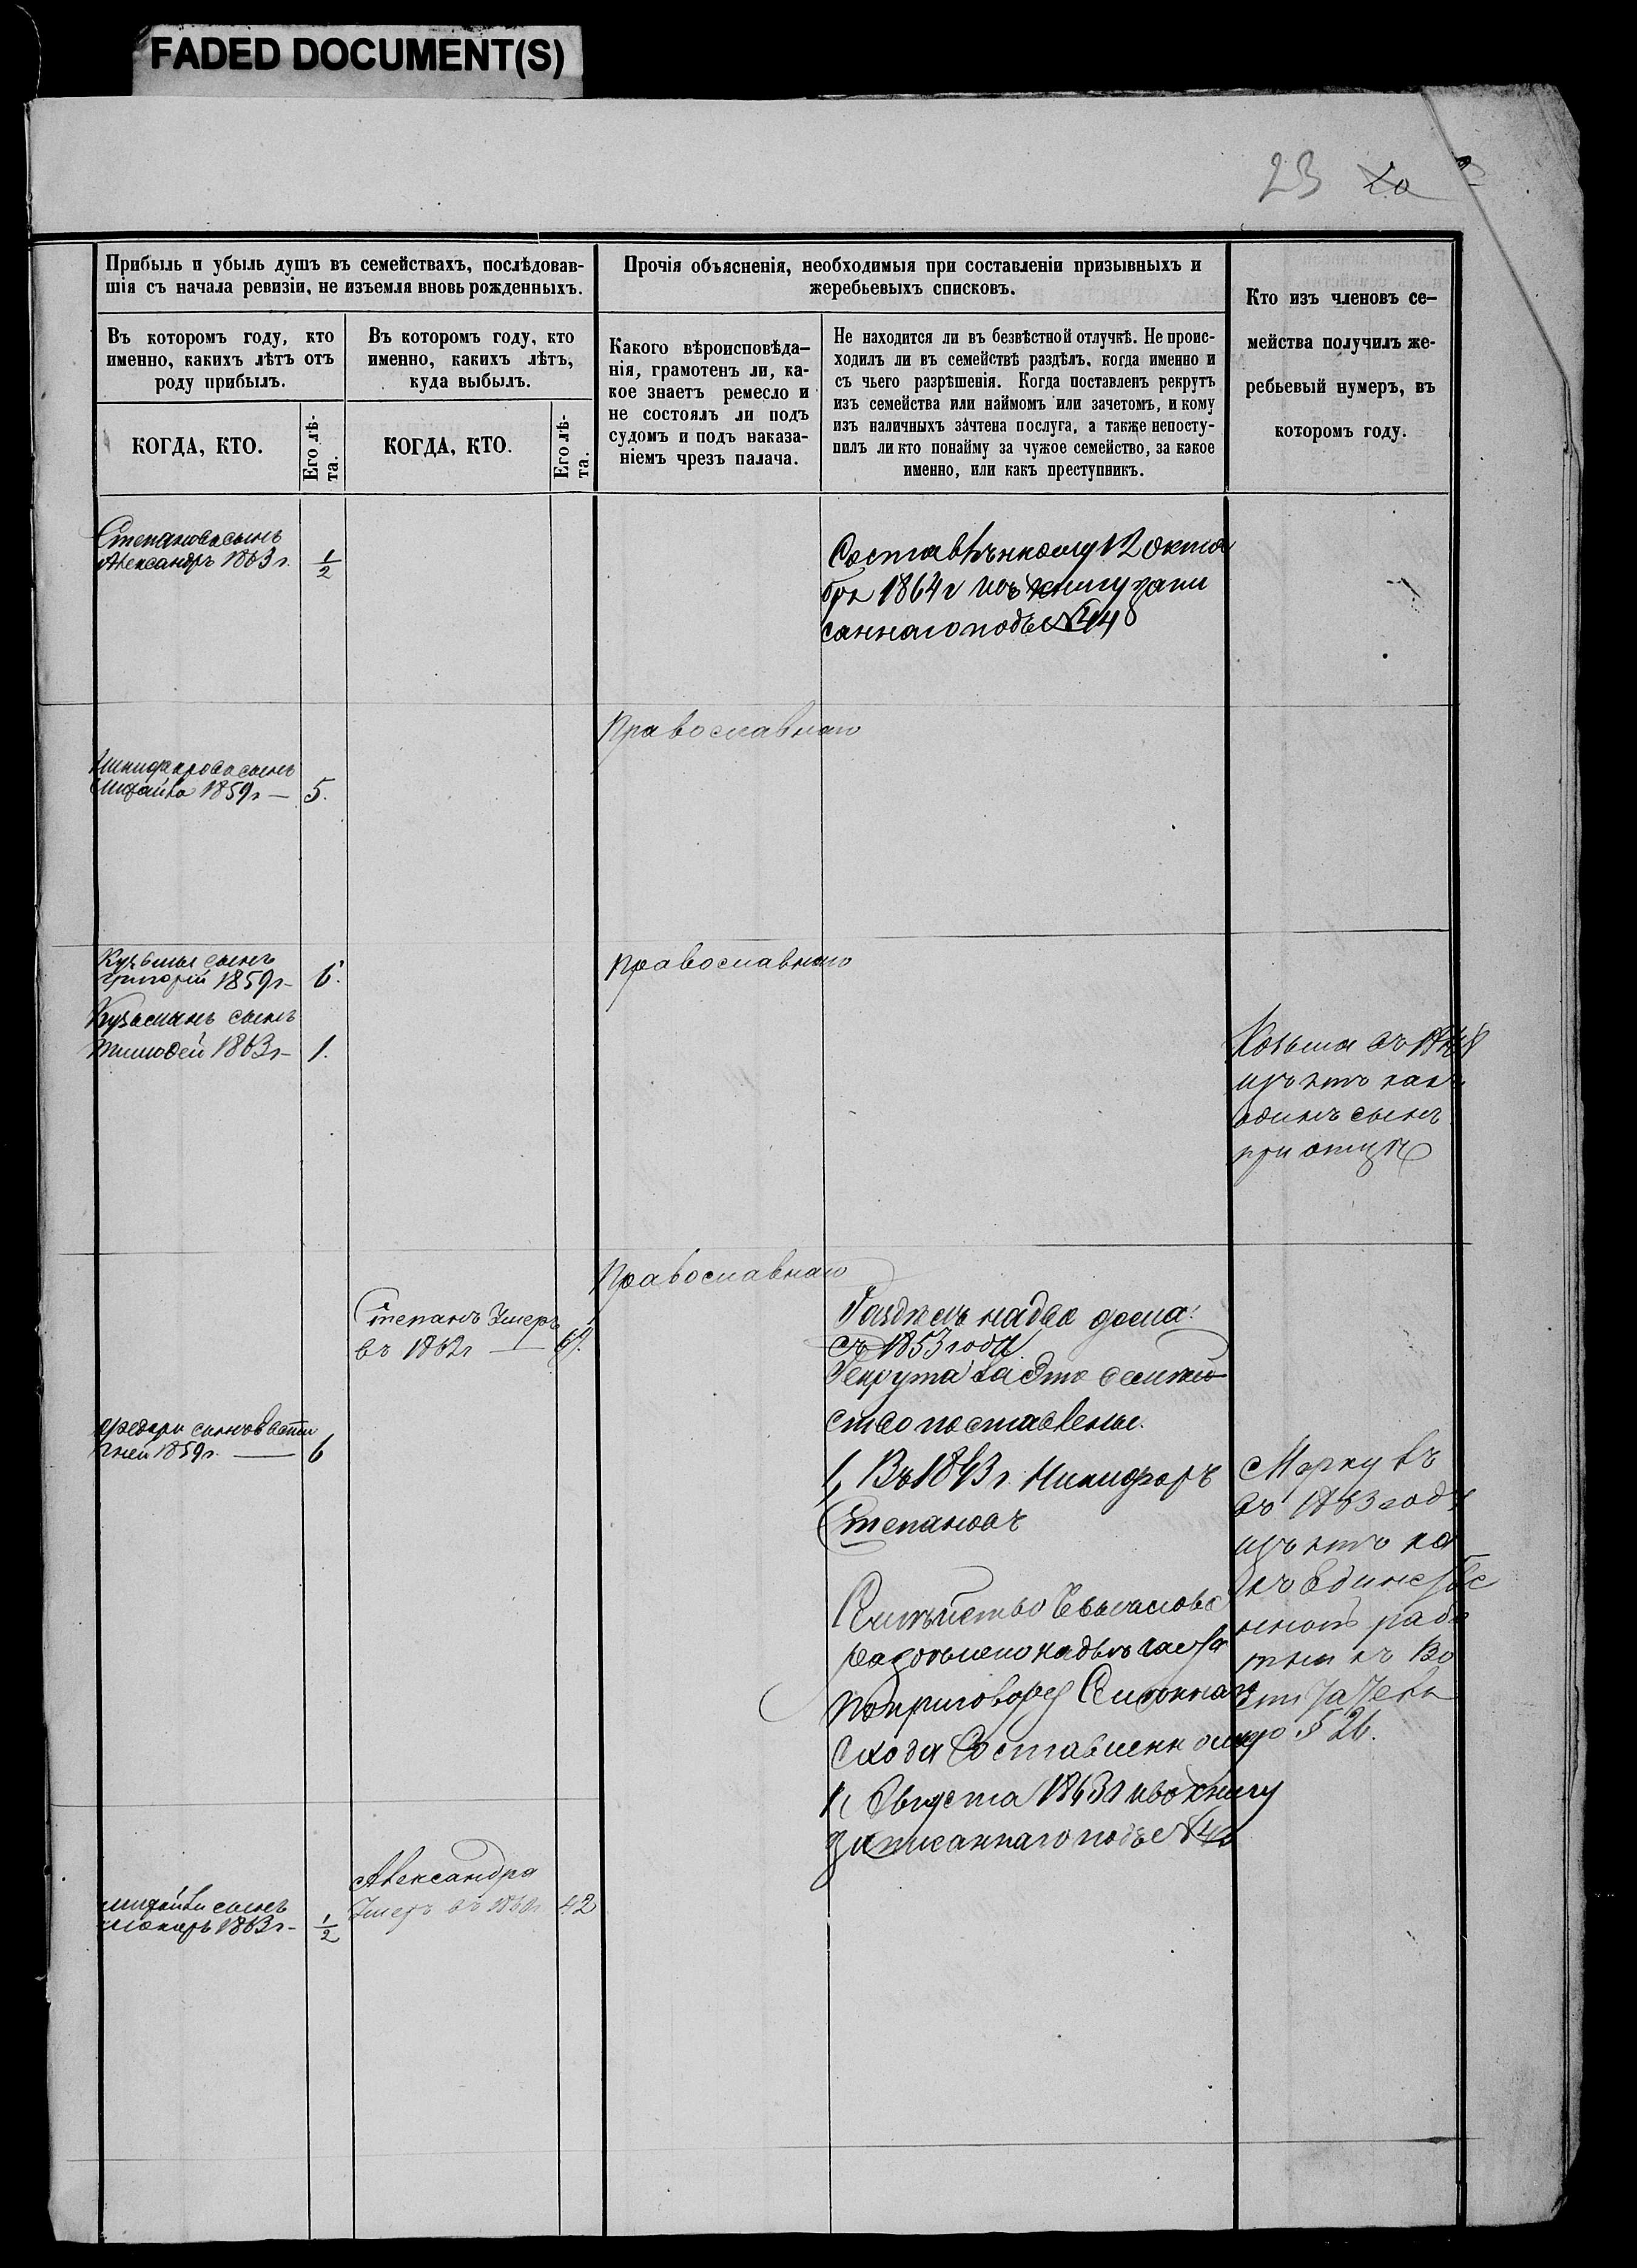 FADED DOCUMENT(S)
23 20
Прибыль и убыль душъ въ семействахъ, послѣдовав-
шія съ начала ревизіи, не изъемля вновь рожденныхъ.
Прочія объясненія, необходимыя при составленіи призывныхъ и
жеребьевыхъ списковъ.
Кто изъ членовъ се-
мейства получилъ же-
ребьевый нумеръ, въ
которомъ году.
Въ которомъ году, кто
именно, какихъ лѣтъ отъ
роду прибылъ.
Въ которомъ году, кто
именно, какихъ лѣтъ,
куда выбылъ.
Какого вѣроисповѣда-
нія, грамотенъ ли, ка-
кое знаетъ ремесло и
не состоялъ ли подъ
судомъ и подъ наказа-
ніемъ чрезъ палача.
Не находится ли въ безвѣстной отлучкѣ. Не проис-
ходилъ ли въ семействѣ раздѣлъ, когда именно и
съ чьего разрѣшенія. Когда поставленъ рекрутъ
изъ семейства или наймомъ или зачетомъ, и кому
изъ наличныхъ зачтена послуга, а также непосту-
пилъ ли кто понайму за чужое семейство, за какое
именно, или какъ преступникъ.
КОГДА, КТО.
Его лѣ-
та.
КОГДА, КТО.
Его лѣ-
та.
Степанова сынъ
Александръ 1863 г. 1/2
Составленному 12 октя
бря 1864 г книгу запи
саннаго подъ №
Православнаго
Никифорова сынъ
Михайла 1859 г — 5.
Кузьмы сынъ
Григорій 1859 г — 6.
Православнаго
Кузьмы сынъ
Тимофей 1863 г — 1.
Козьма въ
какъ
одинъ сынъ
при отцѣ
Православнаго
Степанъ Умеръ
въ 1862 г —
Раздѣлъ на два дома
съ 1853 года
Рекрута за это семей
ство поставлены.
Федора сынъ
1859 г. — 6
1, Въ 1843 г. Никифоръ
Степановъ
Марку въ
въ 1853 году
Семейство
раздѣлено на двѣ части
по приговору
схода Составленному
1, Августа 1863 г и во книгу
записаннаго подъ №
§ 26.
Михайлы сынъ
1863 г — 1/2
Александра
Умеръ въ 1860 г 42